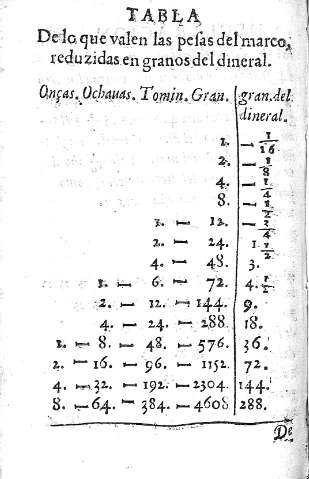 TABLA
De lo que valen las pesas del marco,
reduzidas en granos del dineral.
Onças. Ochauas. Tomin. Gran. gran. del
dineral.
1. — 1/16
2. — 1/8
4 — 1/4
8. — 1/2
1 — 12. — 3/4
2. — 24. 1 1/2
4 — 48. 3.
1. — 6. — 72. 4. 1/2
2. — 12. — 144. 9.
4. — 24. — 288. 18.
1. — 8. — 48. — 576. 36.
2. — 16. — 96. — 1152. 72.
4. — 32. — 192. — 2304. 144.
8. — 64. — 384. — 4608 288.
De